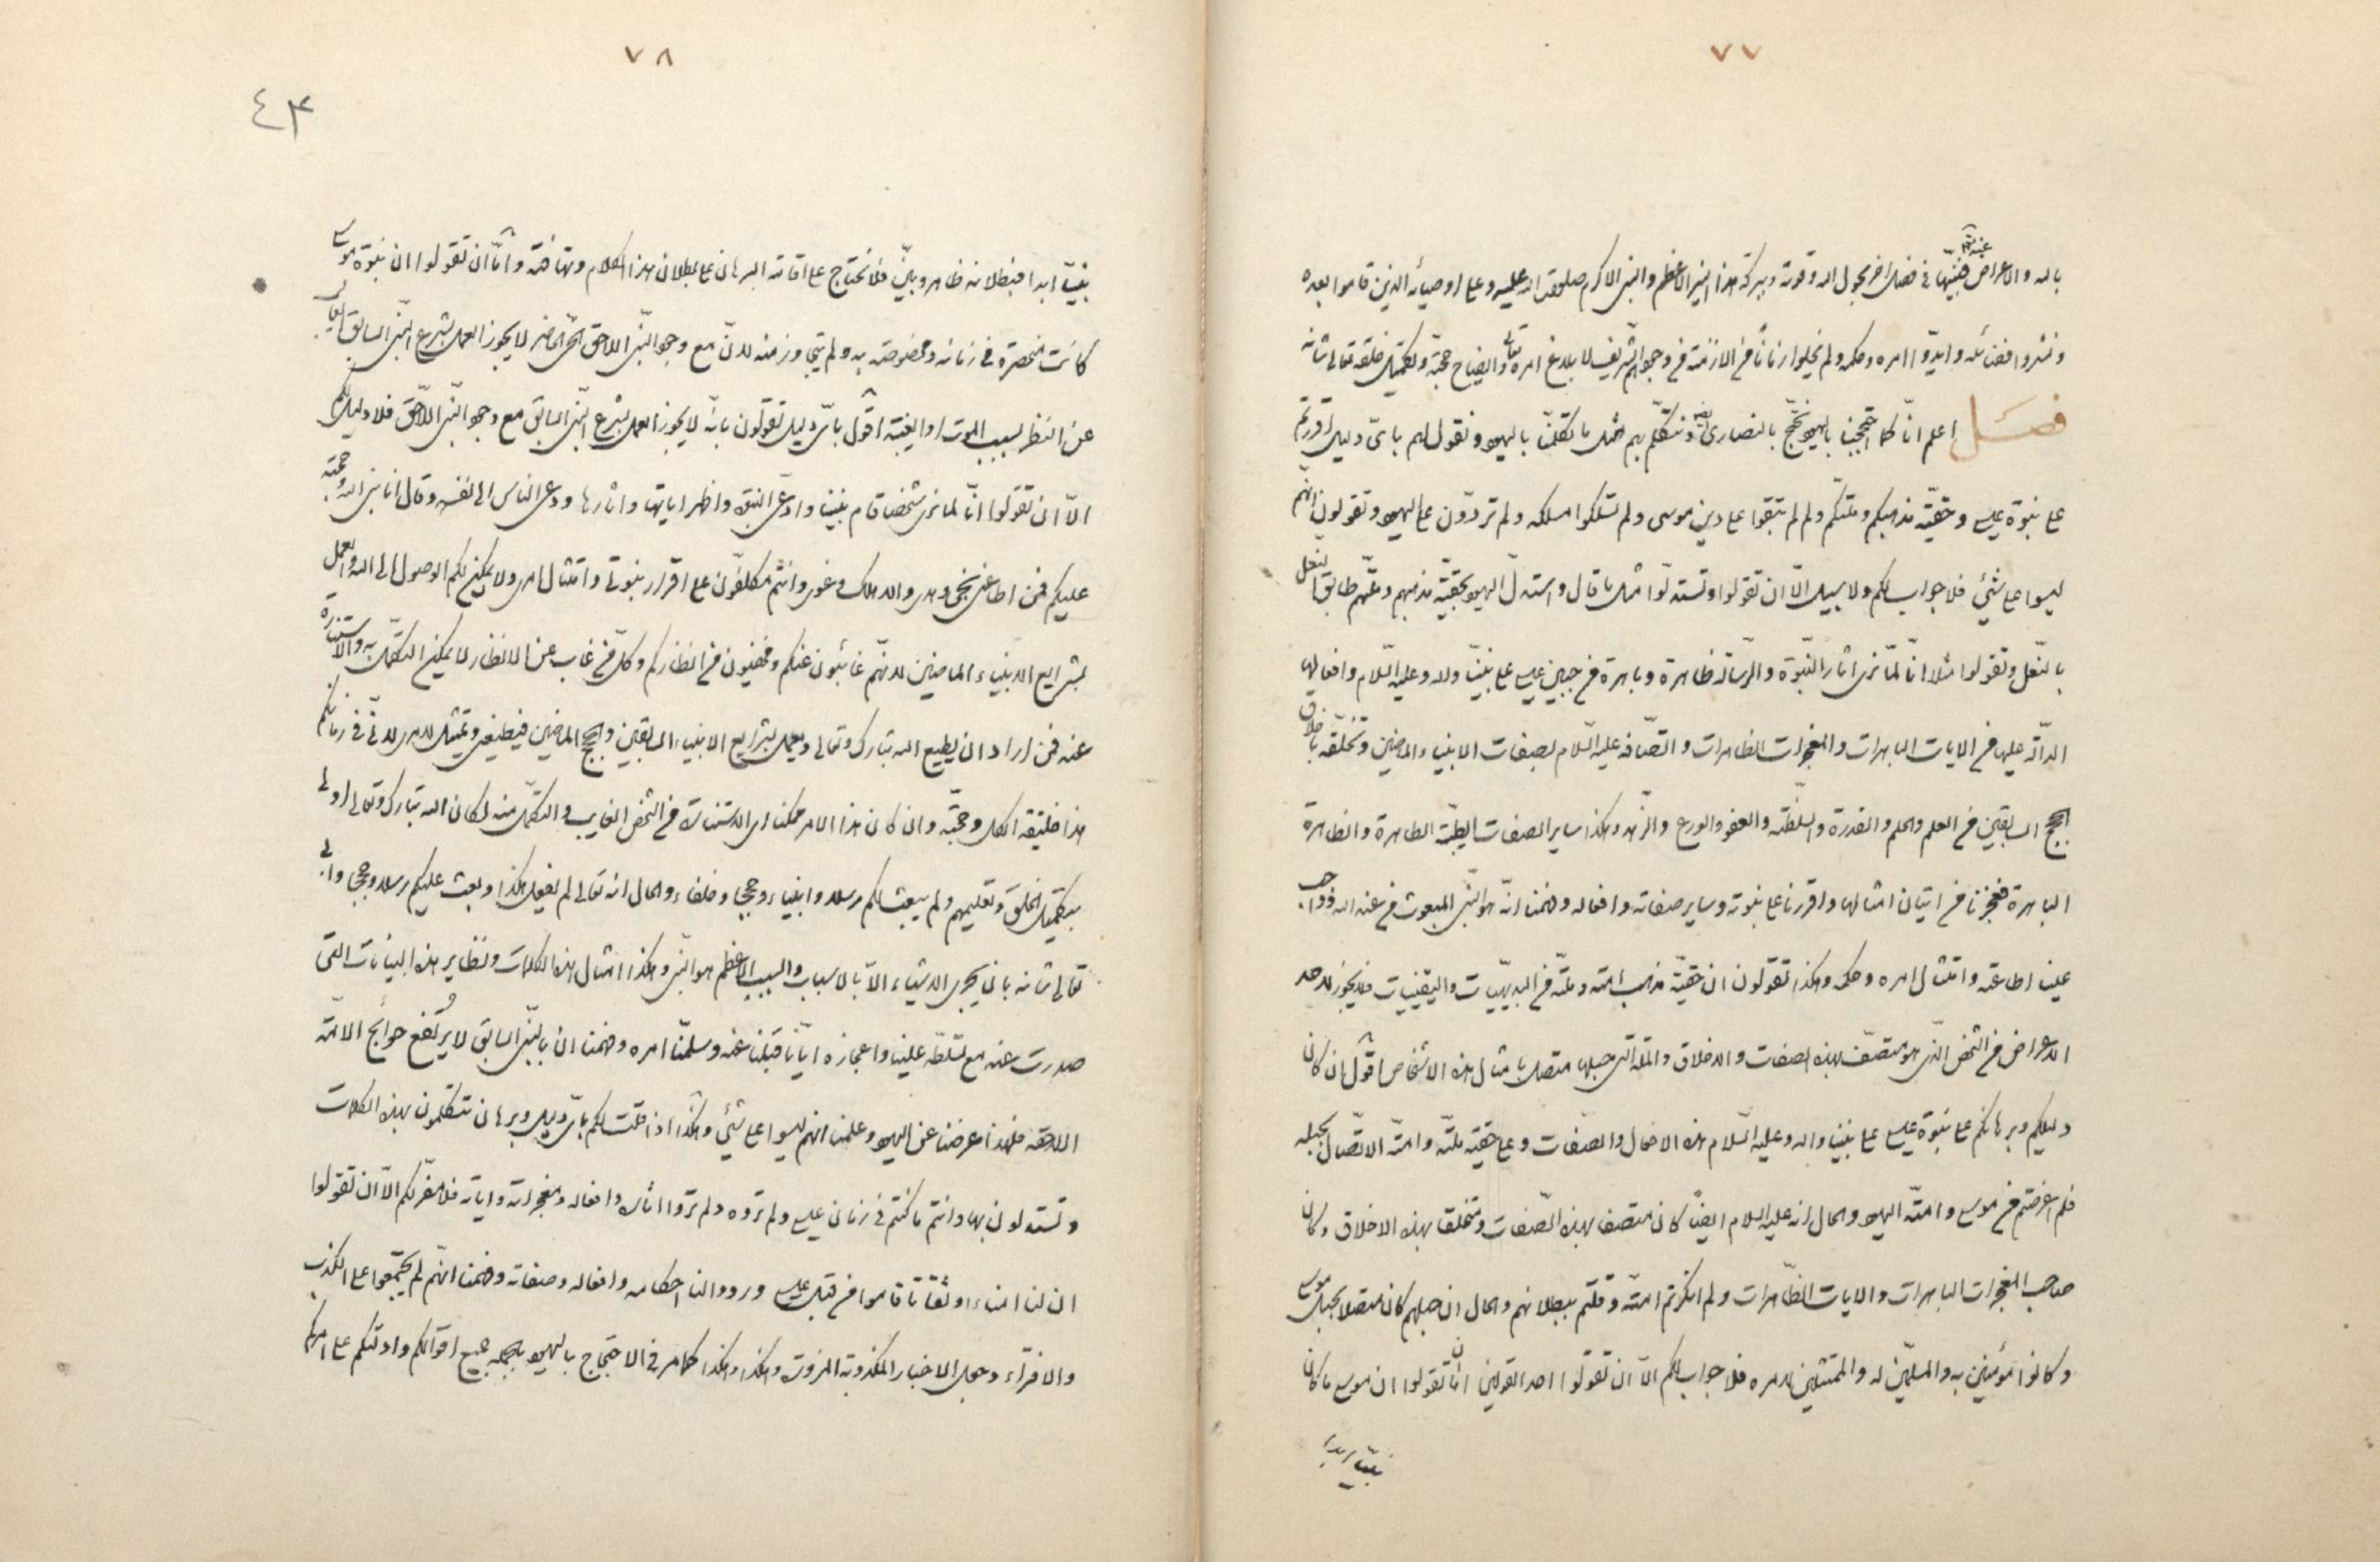 ٧٧
بالله والاعراض عنه فنبيّنها في فصل اخر بحول الله وقوته وببركة هذا النير الاعظم والنبي الاكرم صلوات الله عليه وعلى اوصيائه الذين قاموا بعده
ونشروا فضائله وايدوا امره وحكمه ولم يخلوا زماناً من الازمنة من وجودهم الشريف لابلاغ امره تعالى وايضاح حجته ولتكميل خلقه تعالى شانه
فصل اعلم انّا كما احتججنا باليهود نحتج بالنصارى ونتكلم بهم مثل ما تكلمنا باليهود ونقول لهم باىّ دليل اقررتم
على نبوة عيسى وحقية مذهبكم وملتكم ولم لم تبقوا على دين موسى ولم تسلكوا مسلكه ولم تردّون على اليهود وتقولون انهم
ليسوا على شئ فلا جواب لكم ولا سبيل الّا ان تقولوا وتستدلّوا مثل ما قال واستدلّ اليهود بحقية مذهبهم وملتهم طابق النعل
بالنعل وتقولوا مثلا انّا لمّا نرى اثار النبوة والرسالة ظاهرة وباهرة من جبين عيسى على نبينا واله وعليه السلام وافعاله
الدالة عليها من الايات الباهرات والمعجزات الظاهرات واتصافه عليه السلام بصفات الانبياء الماضين وتخلقه باخلاق
الحجج السابقين من العلم والحلم والقدرة والسلطنة والعفو والورع والزهد وهكذا ساير الصفات الطيبة الطاهرة والظاهرة
الباهرة فعجزنا من اتيان امثالها واقررنا على نبوته وساير صفاته وافعاله وفهمنا انّه هو النبي المبعوث من عند الله وواجب
علينا اطاعته وامتثال امره وحكمه وهكذا تقولون ان حقية مذهب امته وملته من البديهيات واليقينيات فلا يجوز لاحد
الاعراض من الشخص الذي هو متصف بهذه الصفات والاخلاق والملة التي حبلها متصل بامثال هذه الاشخاص اقول ان كان
دليلكم وبرهانكم على نبوة عيسى على نبينا واله وعليه السلام هذه الافعال والصفات وعلى حقية ملته وامته الاتصال بحبله
فلم اعرضتم من موسى وامته اليهود والحال انه عليه السلام ايضاً كان متصف بهذه الصفات ومتخلقا بهذه الاخلاق وكان
صاحب المعجزات الباهرات والايات الظاهرات ولم انكرتم امته وقلتم ببطلانهم والحال ان حبلهم كان متصلا بحبل موسى
وكانوا مؤمنين به والمسلمين له والممتثلين لامره فلا جواب لكم الّا ان تقولوا احد القولين امّا ان تقولوا ان موسى ما كان
نبيّا ابدا
٧٨
٤٣
نبيّا ابدا فبطلانه ظاهر وبيّن فلا نحتاج على اقامة البرهان على بطلان هذا الكلام وتهافته وامّا ان تقولوا ان نبوة موسى
كانت منحصرة في زمانه ومخصوصة به ولم يتجاوز منه لانّ مع وجود النبي اللاحق الحاضر لا يجوز العمل بشرع النبي السابق الغايب
عن النظر بسبب الموت او الغيبة اقول باىّ دليل تقولون بانّه لا يجوز العمل بشرع النبي السابق مع وجود النبي اللاحق فلا دليل لكم
الّا ان تقولوا انّا لما نرى شخصا قام بيننا وادعى النبوة واظهر اياتها واثارها ودعى الناس الى نفسه وقال انا نبي الله وحجته
عليكم فمن اطاعني نجى وهدى والا هلك وغوى وانتم مكلفون على اقرار بنبوتي وامتثال امرى ولا يمكن لكم الوصول الى الله والعمل
بشرايع الانبياء الماضين لانهم غائبون عنكم ومخفيون من انظاركم وكل من غاب عن الانظار لا يمكن التكمل به والاستنارة
عنه فمن اراد ان يطيع الله تبارك وتعالى ويعمل بشرايع الانبياء السابقين والحجج الماضين فيطيعني ويمتثل لامرى لانّي في زمانكم
هذا خليفة الكل وحجته وان كان هذا الامر ممكنا اى الاستنارة من الشخص الغايب والتكمل منه لكان الله تبارك وتعالى اولى
بتكميل الخلق وتعليمهم ولم يبعث لكم رسلا وانبياء وحججا وخلفاء والحال انه تعالى لم يفعل هكذا وبعث عليكم رسلا وحججا وابى
تعالى شانه بان يجرى الاشياء الّا بالاسباب والسبب الاعظم هو النبي وهكذا امثال هذه الكلمات ونظاير هذه البيانات التي
صدرت عنه مع تسلطه علينا واعجازه ايّانا قبلنا عنه وسلّمنا امره وفهمنا ان بالنبي السابق لا يرتفع حوائج الامة
اللاحقة فلهذا اعرضنا عن اليهود وعلمنا انهم ليسوا على شئ وهكذا اذا قلت لكم باىّ دليل وبرهان تتكلمون بهذه الكلمات
وتستدلون بها وانتم ما كنتم في زمان عيسى ولم تروه ولم تروا اثاره وافعاله ومعجزاته واياته فلا مفرّ لكم الّا ان تقولوا
ان لنا امناء وثقاتا قاموا من قبل عيسى ورووا لنا احكامه وافعاله وصفاته وفهمنا انّهم لم يجتمعوا على الكذب
والافتراء وجعل الاخبار المكذوبة المزورة وهكذا وهكذا كما مر في الاحتجاج باليهود جميع اقوالكم وادلتكم على امركم